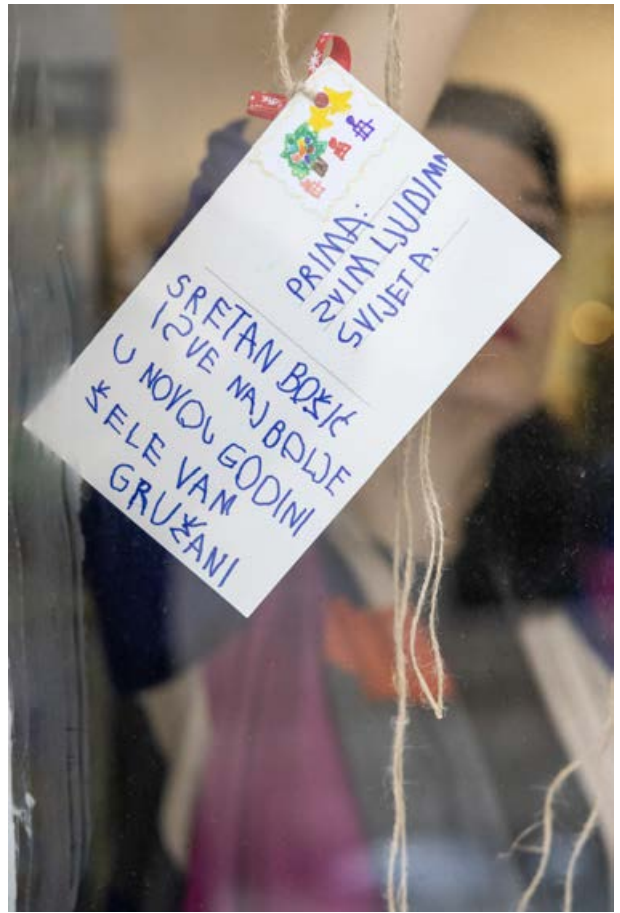 PRIMA:
SVIM LJUDIMA
SVIJETA.
SRETAN BOŽIĆ
I SVE NAJBOLJE
U NOVOJ GODINI
ŽELE VAM
GRUŽANI